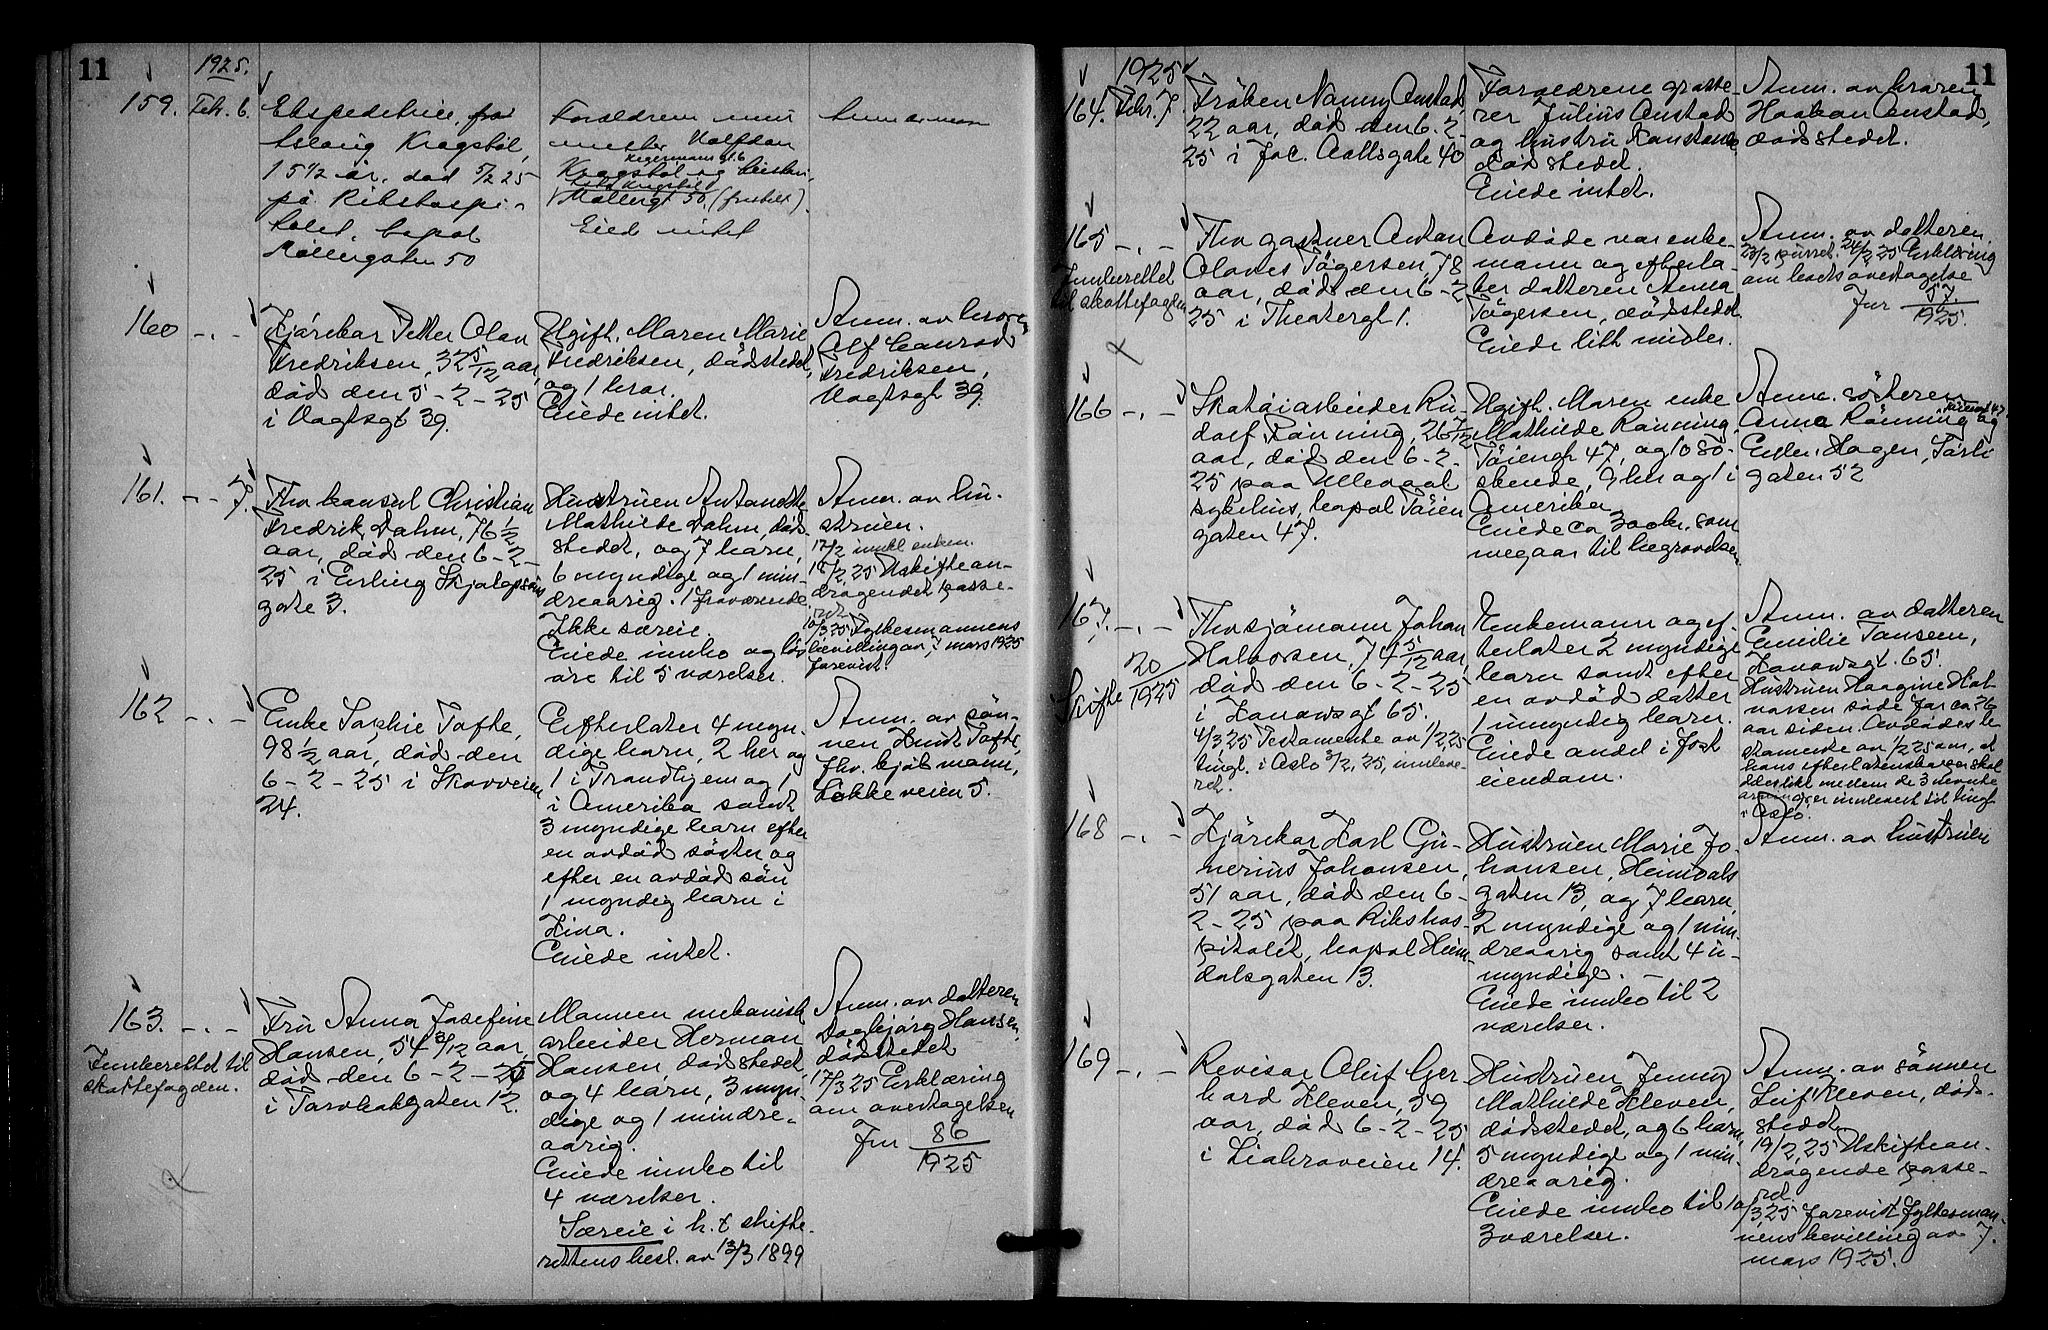 11
1925.
159. Febr. 6.
Ekspeditrice
Aslaug Kragstøl,
15 1/2 år, død 5/2 25
på Rikshospi-
talet, bopæl
Møllergaten 50
Forældrene mur
mester Halfdan
Kragstøl og hustru
Møllergt 50 (fraskilt).
Eied intet
160 -.-
Kjørekar Petter Olav
Fredriksen, 32 5/12 aar,
død den 5-2-25
i Vogtsgt 39.
Ugift. Moren Marie
Fredriksen, dødstedet,
og 1 bror.
Eiede intet.
Anm. av broren
Alf Conrad
Fredriksen,
Vogtsgt 39.
161. -.- 7.
Fhv konsul Christian
Fredrik Dahm, 76 1/2
aar, død den 6-2-
25 i Erling Skjalgssøns
gate 3.
Hustruen Antandte
Mathilde Dahm, død-
stedet, og 7 barn,
6 myndige og 1 min-
dreaarig. 1 fraværende.
Ikke særeie
Eiede innbo og løs
øre til 5 værelser.
Anm. av hu-
struen.
17/2 innk enken.
18/2 25 Uskiftean-
dragendet passe-
ret
10/3 25 Fylkesmannens
bevilling av 7 mars 1925
forevist.
162 -.-
Enke Sophie Tofte,
98 1/2 aar, død den
6-2-25 i Skovveien
24.
Efterlater 4 myn-
dige barn, 2 her og
1 i Trondhjem og 1
i Amerika samt
3 myndige barn efter
en avdød søster og
efter en avdød søn
1 myndig barn i
Kina.
Eiede intet.
Anm. av søn-
nen Knut Tofte,
fhv. kjøbmann,
Løkkeveien 5.
163. -.-
Innberettet til
skattefogden.
Fru Anna Josefine
Hansen, 54 8/12 aar,
død den 6-2-25
i Torvbakgaten 12.
Mannen mekanisk
arbeider Herman
Hansen, dødstedet
og 4 barn, 3 myn-
dige og 1 mindre-
aarig.
Eiede innbo til
4 værelser.
Særeie i h. t skifte-
rettens besl. av 13/3 1899
Anm. av datteren
Dagbjørg Hansen,
dødstedet
17/3 25 Erklæring
om overtagelsen
Jnr 86/1925
11
1925
164. Febr. 7.
Frøken Nanny Anstad,
22 aar, død den 6-2-
25 i Joc. Aallsgate 40
Forældrene grosse-
rer Julius Anstad
og hustru Konstanse
dødstedet.
Eiede intet.
Anm. av broren
Haakon Anstad,
dødstedet.
165 -.-
Innberettet
til skattefogden
Fhv gartner Anton
Olaves Tøgersen, 78
aar, død den 6-2-
25 i Theatergt 1.
Avdøde var enke-
mann og efterla-
ter datteren Anna
Tøgersen, dødstedet
Eiede litt midler.
Anm. av datteren.
23/2 purret. 24/2 25 Erklæring
om boets overtagelse
Jnr 57/1925.
166 -.-
Skotøiarbeider Ru-
dolf Rønning, 26 7/12
aar, død den 6-2-
25 paa Ullevaal
sykehus, bopæl Tøien
gaten 47.
Ugift. Moren enke
Mathilde Rønning,
Tøiengt 47, og 10 sø-
skende, 9 her og 1 i
Amerika
Eiede ca 300 kr. som
medgaar til begravelsen
Anm. søsteren
Anna Rønning og
Hagen,
gaten 52
167. -.-
Skifte 20/1925
Fhv sjømann Johan
Halvorsen, 74 5/12 aar,
død den 6-2-25
i Kanowsgt 65.
4/3 25 Testamente av 1/2 25
tingl. i Oslo 3/2, 25, innleve-
ret.
Enkemann og ef-
terlater 2 myndige
barn samt efter
en avdød datter
1 umyndig barn.
Eiede andel i fast
eiendom.
Anm. av datteren
Emilie Tansem,
Kanowsgt. 65.
Hustruen Haagine Hal
vorsen døde for ca 26
aar siden. Avdødes te
stamente av 1/2 25 om, at
hans efterlatenskaper skal
deles likt mellem de 3 nevnte
arvinger innlevert til tingl
i Oslo.
168 -.-
Kjørekar Karl Gu-
nerius Johansen,
51 aar, død den 6-
2-25 paa Rikshos-
pitalet, bopæl Heim-
dalsgaten 13.
Hustruen Marie Jo-
hansen, Heimdals
gaten 13, og 7 barn,
2 myndige og 1 min-
dreaarig samt 4 u-
myndige.
Eiede innbo til 2
værelser.
Anm. av hustruen
169 -.-
Revisor Oluf Ger
hard Kleven, 59
aar, død 6-2-25
i Liabroveien 14.
Hustruen Jenny
Mathilde Kleven,
dødstedet, og 6 barn,
5 myndige og 1 min-
dreaarig.
Eiede innbo til
3 værelser.
Anm. av sønnen
Leif Kleven, død-
stedet
19/2 25 Uskiftean-
dragende passe-
ret.
10/3 25 forevist Fylkesman-
nens bevilling av 7.
mars 1925.